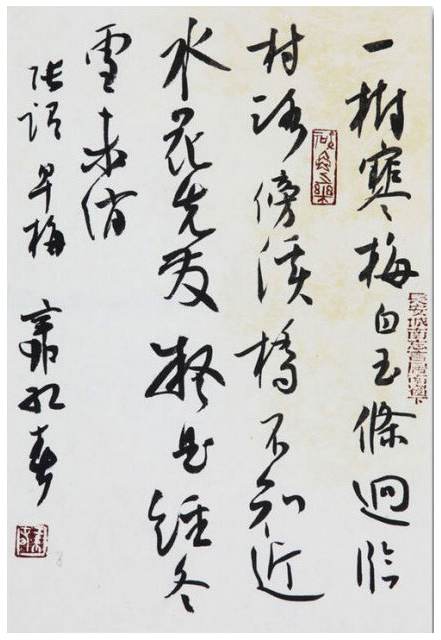 一樹寒梅白玉條迥臨
村路傍溪橋不知近
水花先發疑是經冬
雪未銷
張謂早梅
長安城南